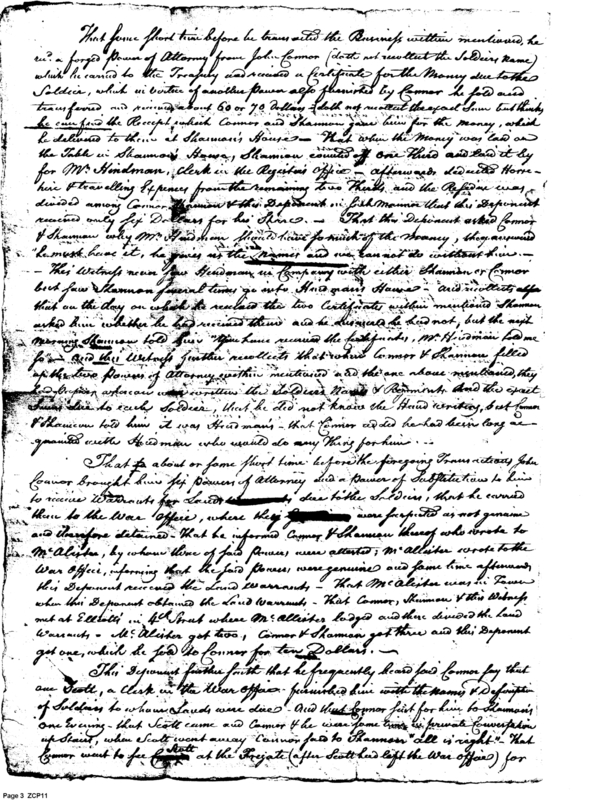 That some short time before he transacted the Business within mentioned, he
recd. a forged Power of Attorney from John Connor (doth not recollect the Soldiers Name)
which he carried to the Treasury and received a Certificate for the Money due to the
Soldier, which in virtue of another Power also furnished by Connor he sold and
transferred and received about 60 or 70 Dollars doth not recollect the exact Sum but thinks
he the Receipt which Connor and Shannon gave him for the money, which
he delivered to them at Shannon's House - That when the Money was laid on
the Table in Shannon's House, Shannon counted off one Third and laid it by
for Mr. Hindman, Clerk in the Registers Office - afterwards deducted Horse-
hire & travelling Expences from the remaining two Thirds and the Residue was
divided among Connor Shannon & this Deponent in such Manner that this Deponent
received only six Dollars for his Share. - That this Deponent asked Connor
& Shannon why Mr. Hindman should have so much of the Money, they answered
he must have it, he gives us the Names and we can not do without him -
- This Witness never saw Hindman in Company with either Shannon or Connor
but saw Shannon several times go into Hindman's House - and recollects also
that on the day on which he received the two Certificates within mentioned Shannon
asked him whether he had received them and he answered he had not, but the next
morning Shannon told him "You have received the Certificates, Mr. Hindman told me
so - And this Witness further recollects that when Connor & Shannon filled
up the two Powers of Attorney within mentioned and the one above mentioned, they
had whereon were written the Soldiers Names & Regiments And the exact
Sums due to each Soldier, that he did not know the Hand writing, but Connor
& Shannon told him it was Hindman's - that Connor added he had been long ac-
quainted with Hindman who would do any Thing for him. -
That about or some short time before the foregoing Transactions John
Connor brought him six Powers of Attorney and a Power of Substitution to him
to receive Warrants for Lands due to the Soldiers, that he carried
them to the War Office, where they were suspected as not genuine
and therefore detained - that he informed Connor & Shannon thereof who wrote to
McAlister, by whom three of said Powers were attested; McAlister wrote to the
War Office, informing that the said Powers were genuine and some time afterwards
this Deponent received the Land Warrants - That McAlister was in Town
when this Deponent obtained the Land Warrants - That Connor, Shannon & this Witness
met at Elliotts in 4th Street where McAlister lodged and there divided the Land
Warrants - McAlister got two, Connor & Shannon got three and this Deponent
got one, which he sold to Connor for ten Dollars. -
This Deponent further saith that he frequently heard said Connor say that
one Scott, a Clerk in the War Office furnished him with the Names & Description
of Soldiers to whom Lands were due - And that Connor sent for him to Shannon's
one Evening - that Scott came and Connor & he were some time in private Conversation
up Stairs, when Scott went away Connor said to Shannon "all is right" - That
Connor went to see Scott at the Frigate (after Scott had left the War Office) for
Page 3 ZCP11